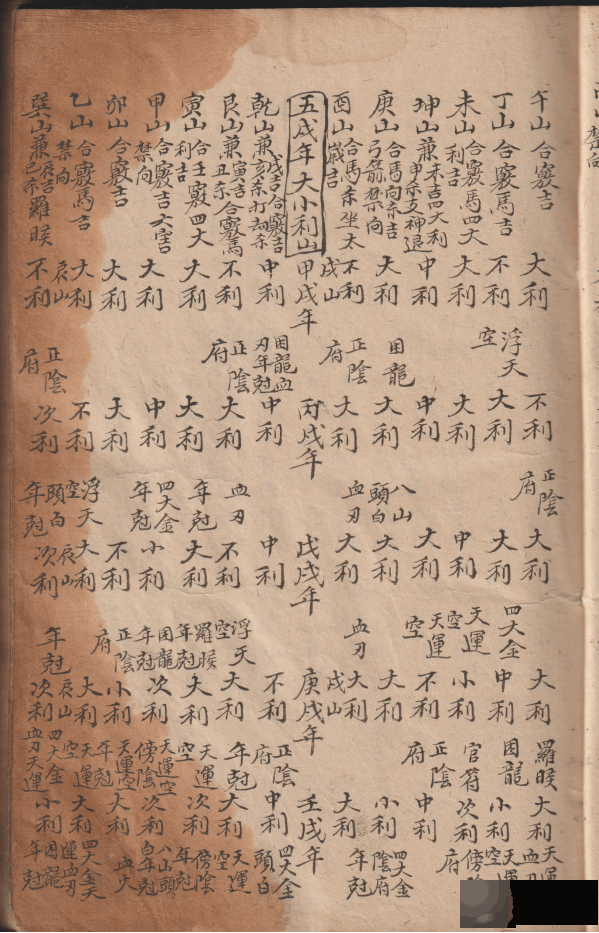 午山合竅吉
丁山合竅馬吉
未山合竅馬四大利吉
坤山兼未吉四大利申杀支神退
庚山合馬向杀吉弓箭禁向
酉山合馬杀坐太歲吉
五戌年大小利山
乾山兼戌吉合竅吉亥杀打劫杀
艮山兼寅吉合竅馬丑杀
寅山合壬竅四大利吉
甲山合竅吉大害禁向
卯山合竅吉
乙山合竅馬吉禁向
巽山兼辰吉羅睺巳杀
大利
不利
大利
中利
大利
不利
戌山
甲戌年
中利
不利
大利
大利
大利
大利
辰山
不利
浮天空
困龍
正陰府
困龍血刃年尅
正陰府
正陰府
不利
大利
大利
中利
大利
大利
丙戌年
中利
大利
大利
中利
大利
不利
次利
正陰府
八山頭白
血刃
血刃
年尅
四大金年尅
浮天空
頭白年尅
大利
大利
中利
大利
大利
大利
戊戌年
中利
不利
大利
小利
不利
大利
辰山
次利
四大金
天運空
天運空
血刃
浮天空
羅睺年尅
困龍年尅
正陰府
年尅
大利
中利
小利
不利
大利
大利
戌山
庚戌年
不利
大利
大利
次利
小利
大利
辰山
次利
羅睺
困龍
官符
正陰府
正陰府
年尅
天運空
天運空傍陰
天運空年尅
天運空
四大金
血刃天運
大利
小利
次利
中利
小利
大利
壬戌年
中利
大利
次利
次利
大利
大利
小利
天運血刃
天運空
傍
府
四大金陰府
年尅
四大金頭白
天運空
傍陰年尅
八山頭白年尅
血
四大金天運血刃
困龍年尅